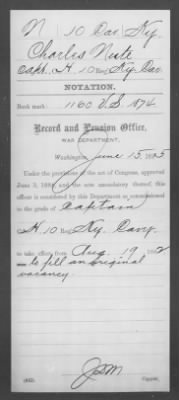 N 10 Cav. Ky.
Charles Nute
Capt. H. 10 Ky. Cav.
NOTATION.
Book mark: 1160 V.S. 1874
Record and Pension Office,
WAR DEPARTMENT,
Washington, June 15, 1895
Under the provisions of the act of Congress, approved
June 3, 1884, and the acts amendatory thereof, this
officer is considered by this Department as commissioned
to the grade of Captain
H 10 Reg. Ky. Cavy.
to take effect from Aug. 19, 1862
to fill an original
vacancy.
Copyist.